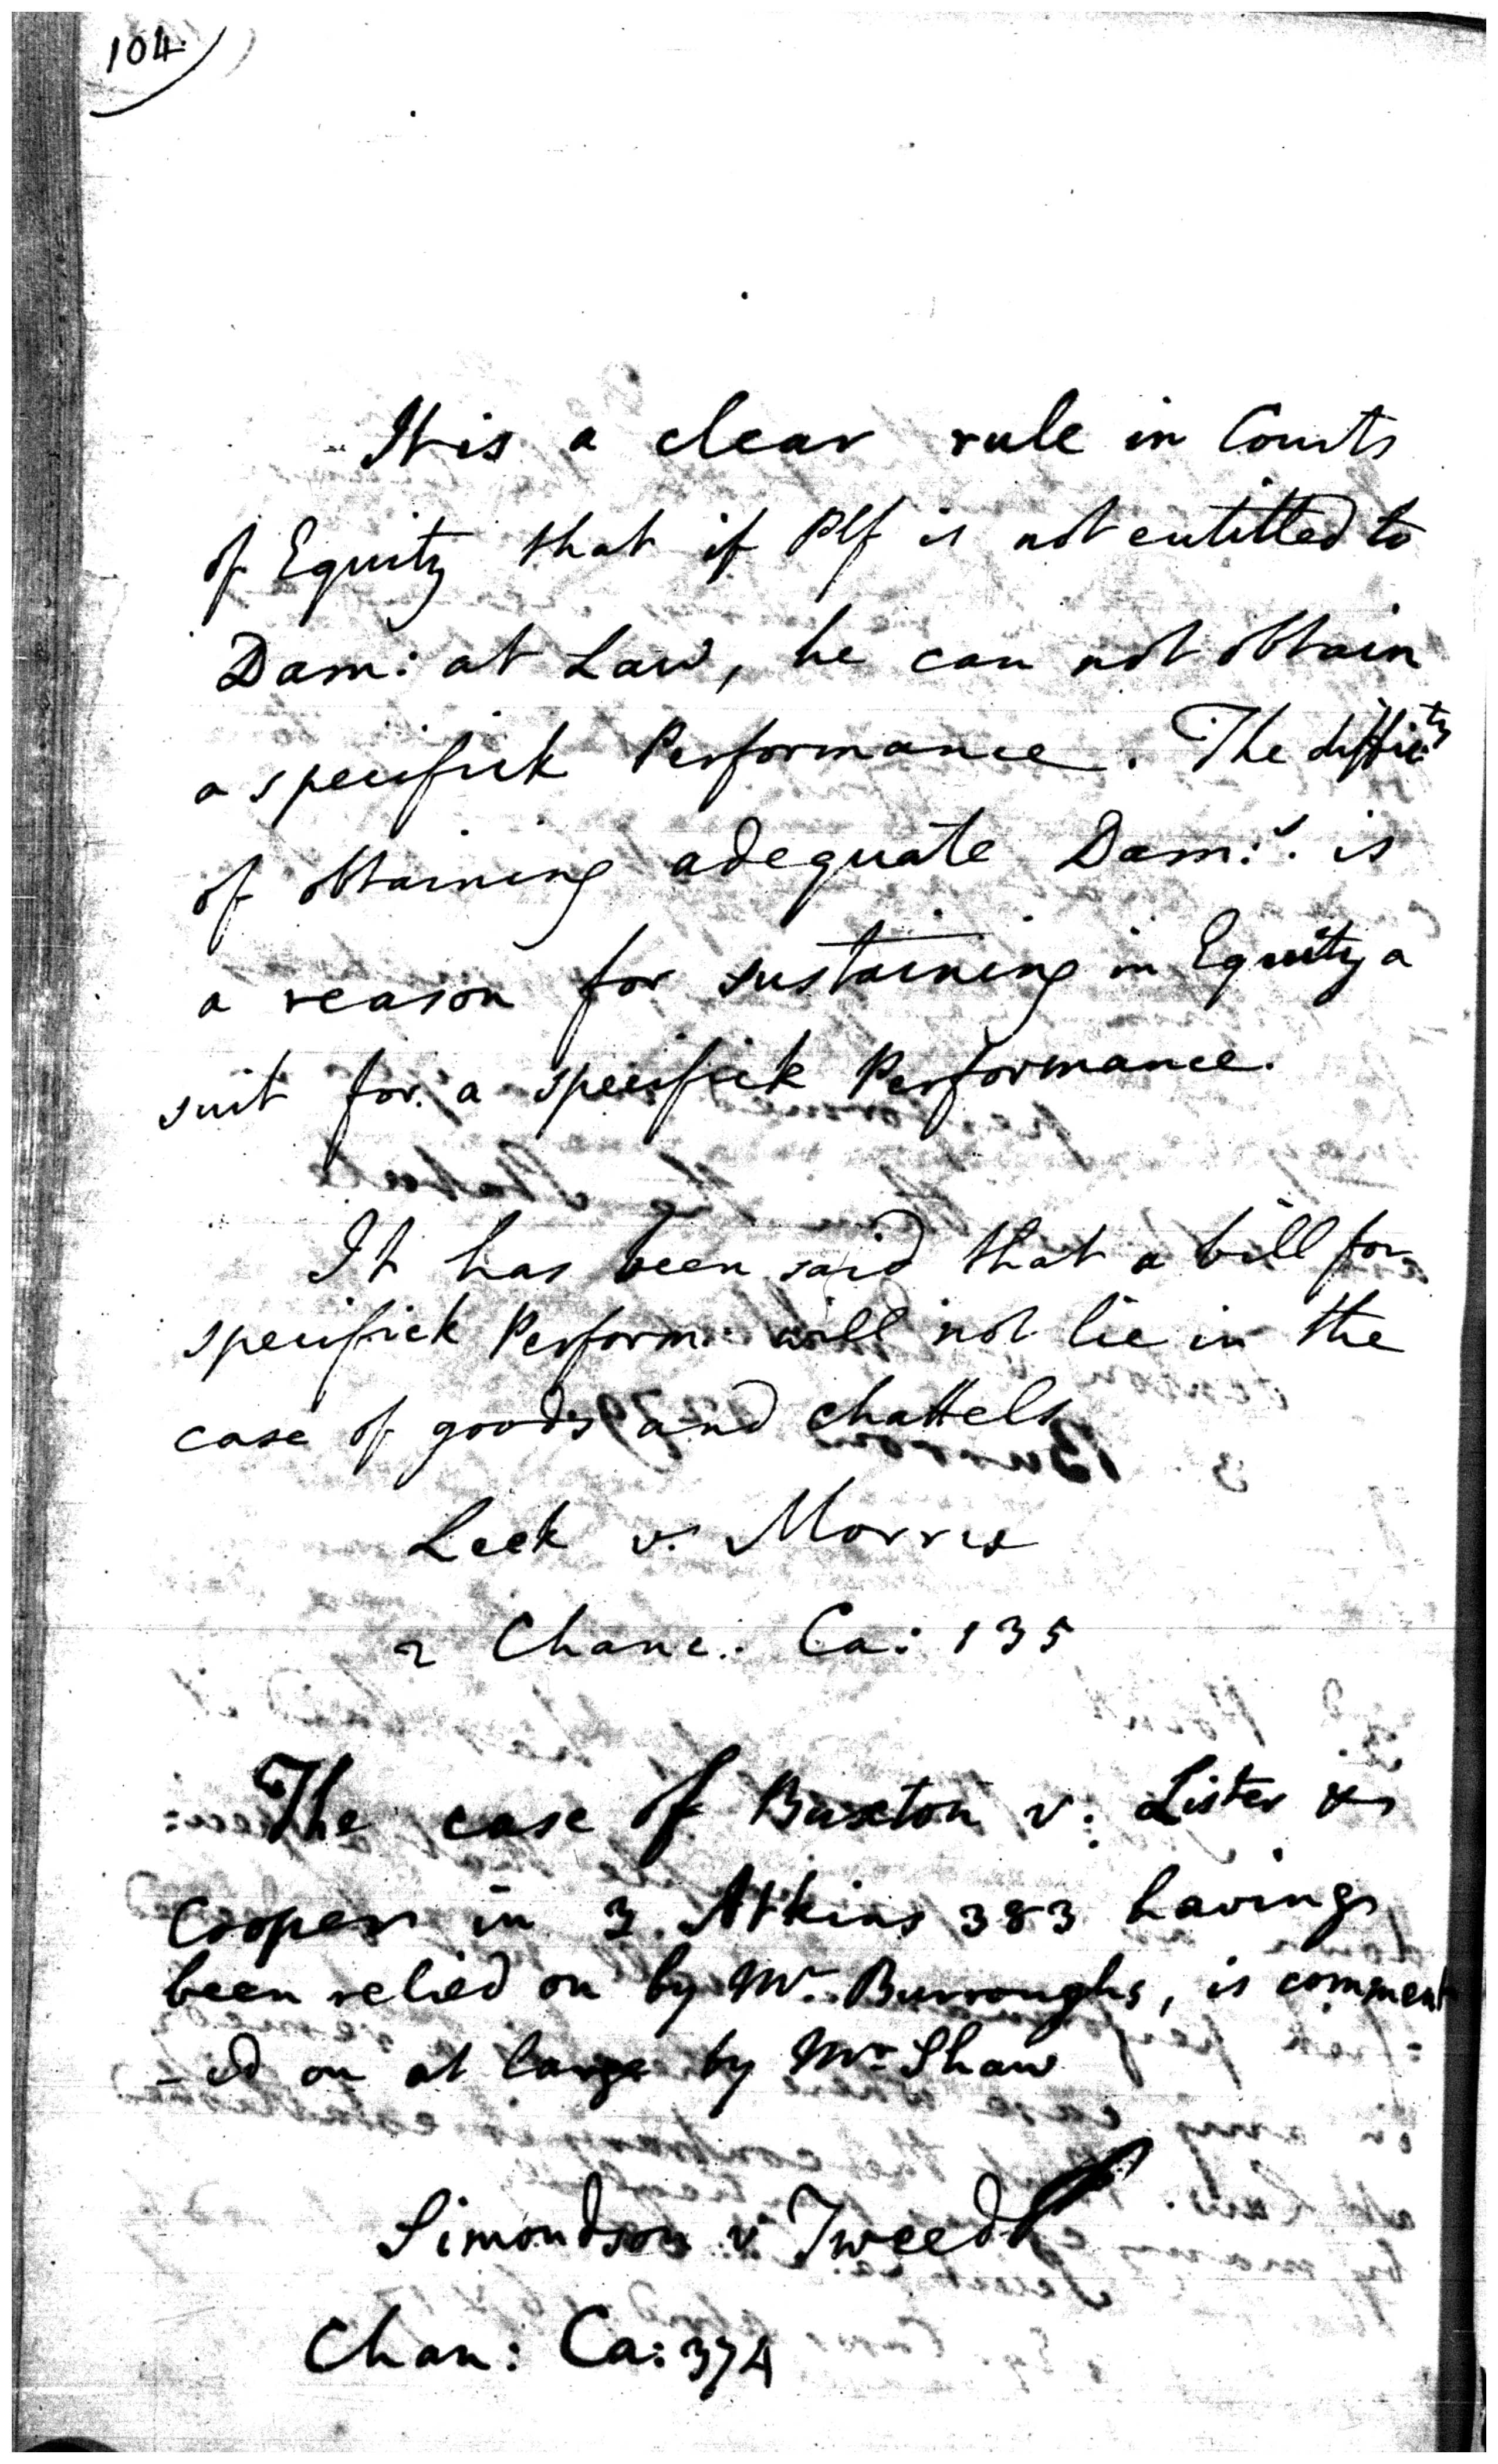 104
It is a clear rule in Courts
of Equity that if Plf is not entitled to
Dam: at Law, he can not obtain
a specifick Performance. The difficty
of obtaining adequate Dam:s. is
a reason for sustaining in Equity a
suit for a specifick Performance.
It has been said that a bill for
specifick Perform: will not lie in the
case of goods and chattels
Leek v. Morris
2 Chanc. Ca: 135
The case of Buxton v: Lister &
Cooper in 3 Atkins 383 having
been relied on by Mr Burroughs, is comment
-ed on at large by Mr Shaw
Simondson v Tweed
Chan: Ca: 374